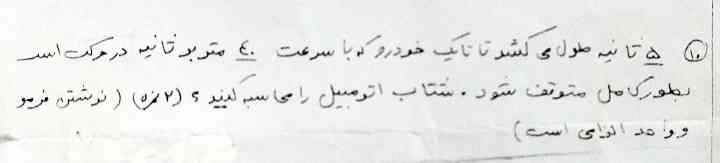 ۱۰) ۵ ثانیه طول می کشد تا یک خودرو که با سرعت ۴۰ متر بر ثانیه در حرکت است
بطور کامل متوقف شود . شتاب اتومبیل را محاسبه کنید ؟ (۲ نمره) ( نوشتن فرمو
و واحد الزامی است )